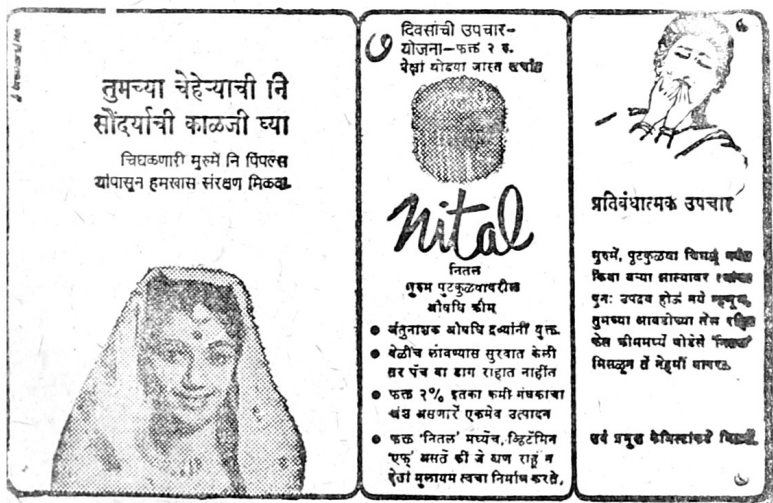 तुमच्या चेहेऱ्याची नि
सौंदर्याची काळजी घ्या
चिघळणारी मुरुमें नि पिंपल्स
यांपासून हमखास संरक्षण मिळवा
७ दिवसांची उपचार-
योजना-फक्त २ रु.
पेक्षां थोडया जास्त खर्चांत
Nital
नितल
मुरुम पुटकुळयावरील
औषधि क्रीम्
● जंतुनाशक औषधि द्रव्यांनीं युक्त.
● वेळींच लावण्यास सुरवात केली
तर पंच वा डाग राहात नाहींत
● फक्त २% इतका कमी गंधकाचा
अंश असणारें एकमेव उत्पादन
● फक्त 'नितल' मध्येंच, व्हिटॅमिन
'एफ्' असतें कीं जे व्रण राहूं न
देतां मुलायम त्वचा निर्माण करते.
प्रतिबंधात्मक उपचार
मुरुमें, पुटकुळया चिघळूं नयेत
किंवा बऱ्या झाल्यावर त्यांचा
पुनः उपद्रव होऊं नये म्हणून,
तुमच्या आवडीच्या तेल रहित
फेस क्रीममध्यें थोडेसें 'नितल'
मिसळून तें नेहमीं वापरा.
सर्व प्रमुख केमिस्टांकडे मिळतें.